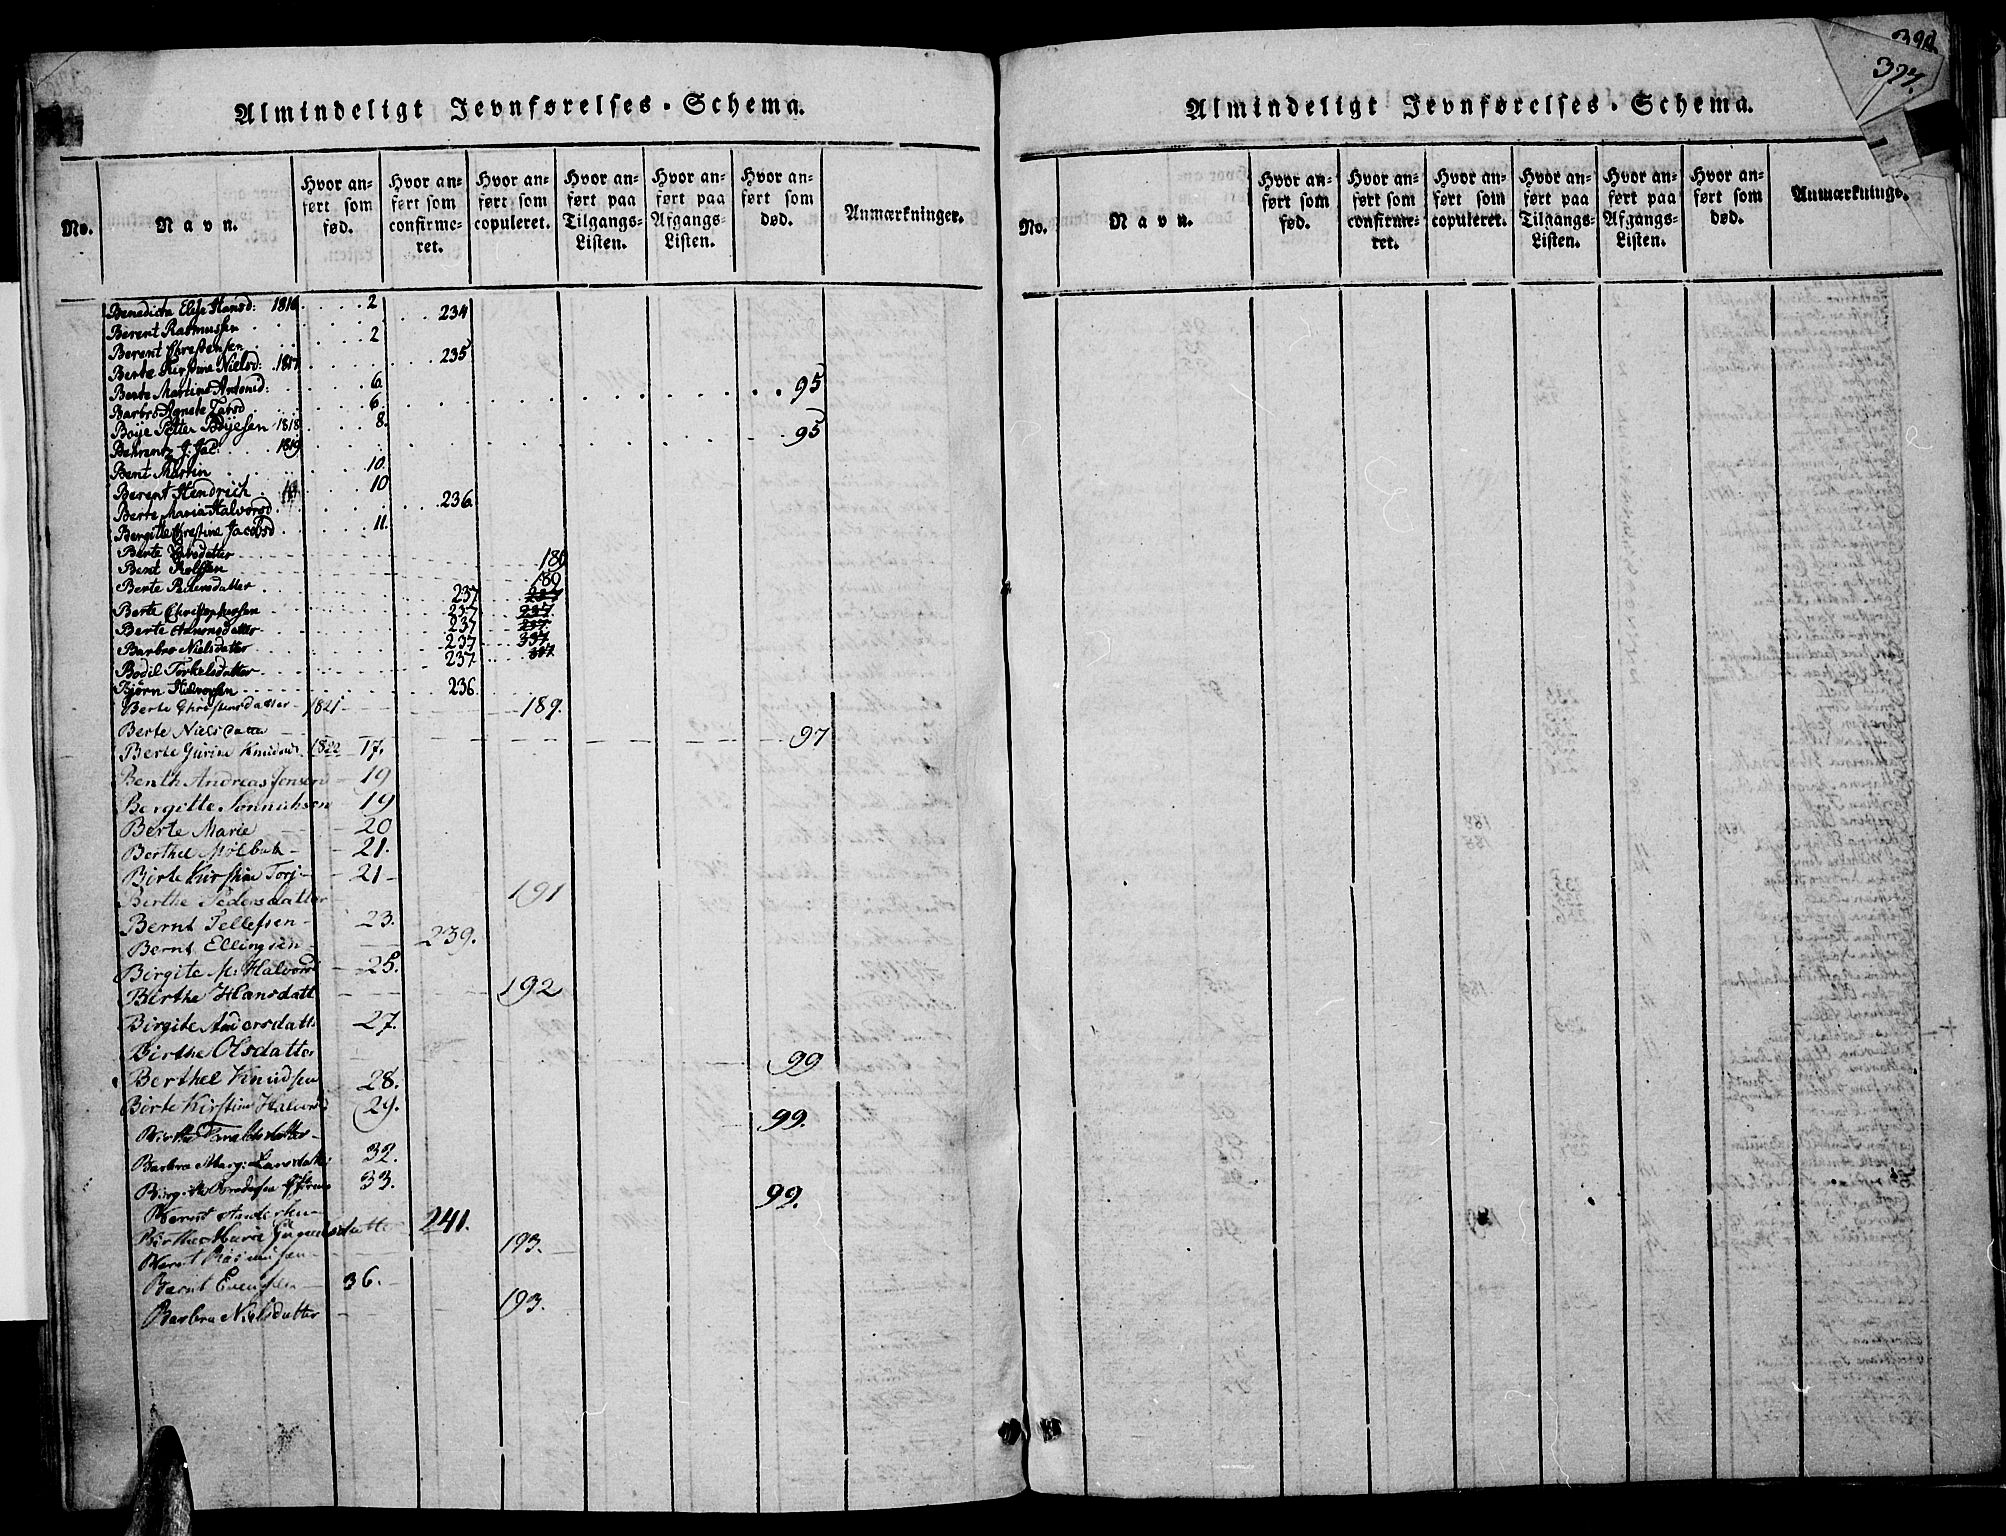 Almindeligt Jevnførelses-Schema.
No. Navn. Hvor anført som fød. Hvor anført som confirmeret. Hvor anført som copuleret. Hvor anført paa Tilgangs-Listen. Hvor anført paa Afgangs-Listen. Hvor anført som død. Anmærkninger.
Benedicta Else Hansd: 1816 2
Berent Rasmussen 234
Berent Christensen 2
Berte Kirstine Nielsd: 1817 235
Berte Martine Antonid: 6
Barbro Agnete Tarsd 6. 95
Boije Petter Boijesen 1818 8.
Behrentz J. Jac: 1819 95
Bent Martin 10.
Berent Hendrich 10
Berte Maria Halvorsd 236
Bergitte Chrestine Jacobsd 11.
Berte
Bent Rolfsen 189
Berte Pedersdatter 189
Berte Christophersen 237 237
Berte Hansdatter 237 237
Barbro Nielsdatter 237 237
Bodil Torkelsdatter 237
Bjørn Halvorsen 236
Berte Christensdatter 1821 189.
Berte Nielsdatter 97
Berte Gurine Knudsd 1822 17.
Benth Andreas Jensen 19
Bergitte Sonnichsen 19
Berte Marie 20
Berthel Mølbak 21.
Birte Kirstine Torj 21
Birthe Pedersdatter 191
Bernt Tellefsen 23.
Bernt Ellingsen 239.
Birgite M. Halvorsd 25.
Birthe Hansdatt 192
Birgite Andersdatt 27.
Birthe Olsdatter 99
Berthel Knudsen 28.
Birte Kirstine Halvorsd 29.
Birthe 99.
Barbra Marg: Larsdatt: 32.
Birgitte 33.
Bernt 99.
Birthe Marie 241.
Bernt Rasmussen 193.
Bernt Evensen 36.
Barbra Nielsdatter 193.
Almindeligt Jevnførelses-Schema.
394
327.
No. Navn. Hvor anført som fød. Hvor anført som confirmeret. Hvor anført som copuleret. Hvor anført paa Tilgangs-Listen. Hvor anført paa Afgangs-Listen. Hvor anført som død. Anmærknings.